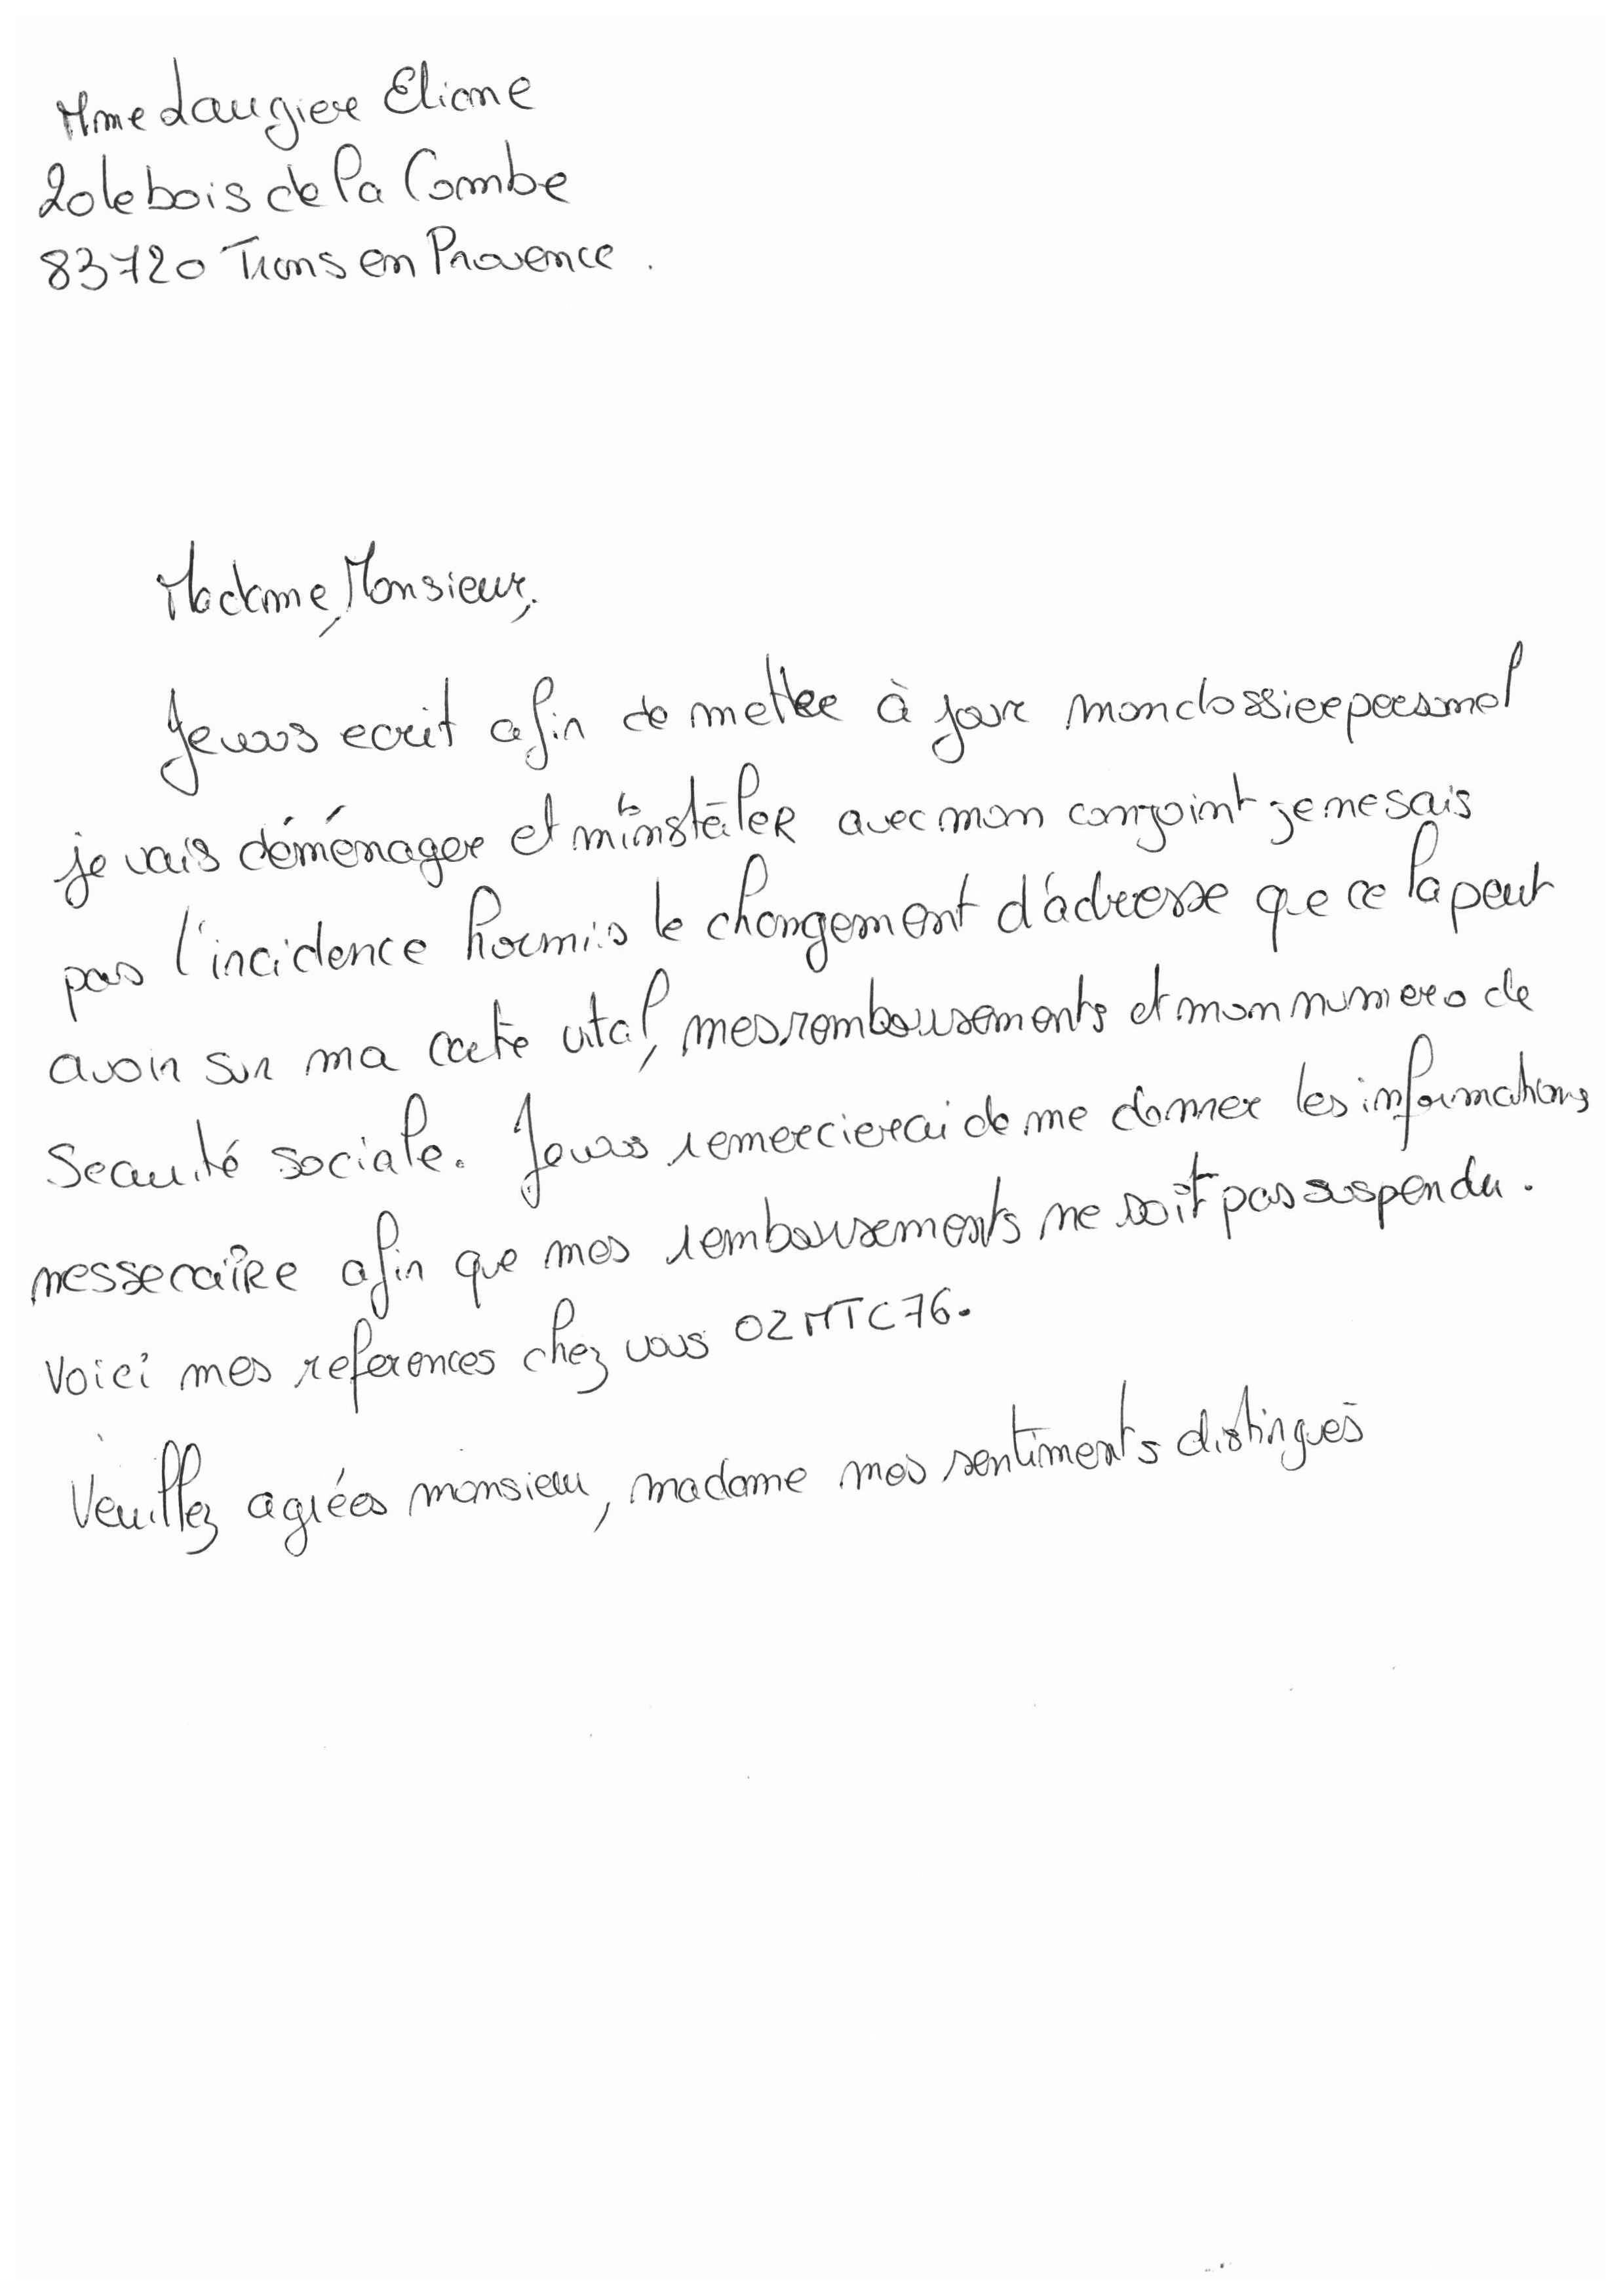 Mme Laugier Eliane
20 le bois de la Combe
83720 Trans en Provence.
Madame, Monsieur,
Je vous ecrit afin de mettre à jour mon dossier personel
je vais déménager et m'installer avec mon conjoint je ne sais
pas l'incidence hormis le changement d'adresse que ce la peut
avoir sur ma carte vital, mes remboursements et mon numero de
Securité sociale. Je vous remercierai de me donner les informations
nessecaire afin que mes remboursements ne soit pas suspendu.
Voici mes references chez vous 02MTC76.
Veuillez agrées monsieur, madame mes sentiments distingués